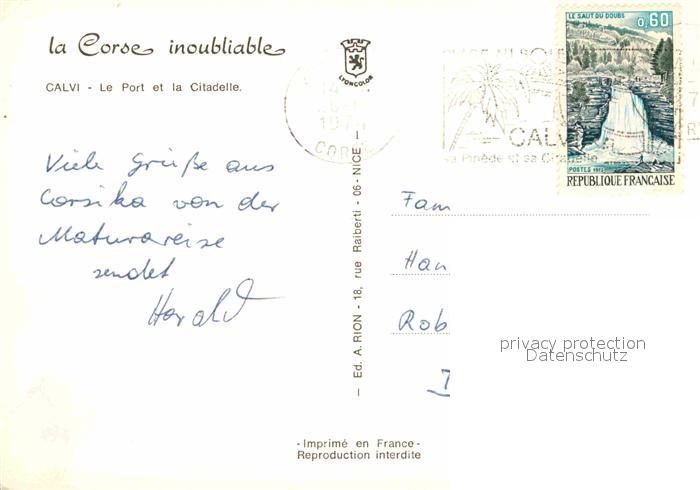 la Corse inoubliable
CALVI - Le Port et la Citadelle.
LYONCOLOR
LE SAUT DU DOUBS
0,60
POSTES 1973
REPUBLIQUE FRANÇAISE
CALV
sa Pinède et sa Citadelle
Viele Grüße aus
Corsika von der
Maturareise
sendet
Harald
— Ed. A. RION - 18, rue Raiberti - 06 - NICE —
Fam
Han
Rob
privacy protection
Datenschutz
-Imprimé en France-
Reproduction interdite